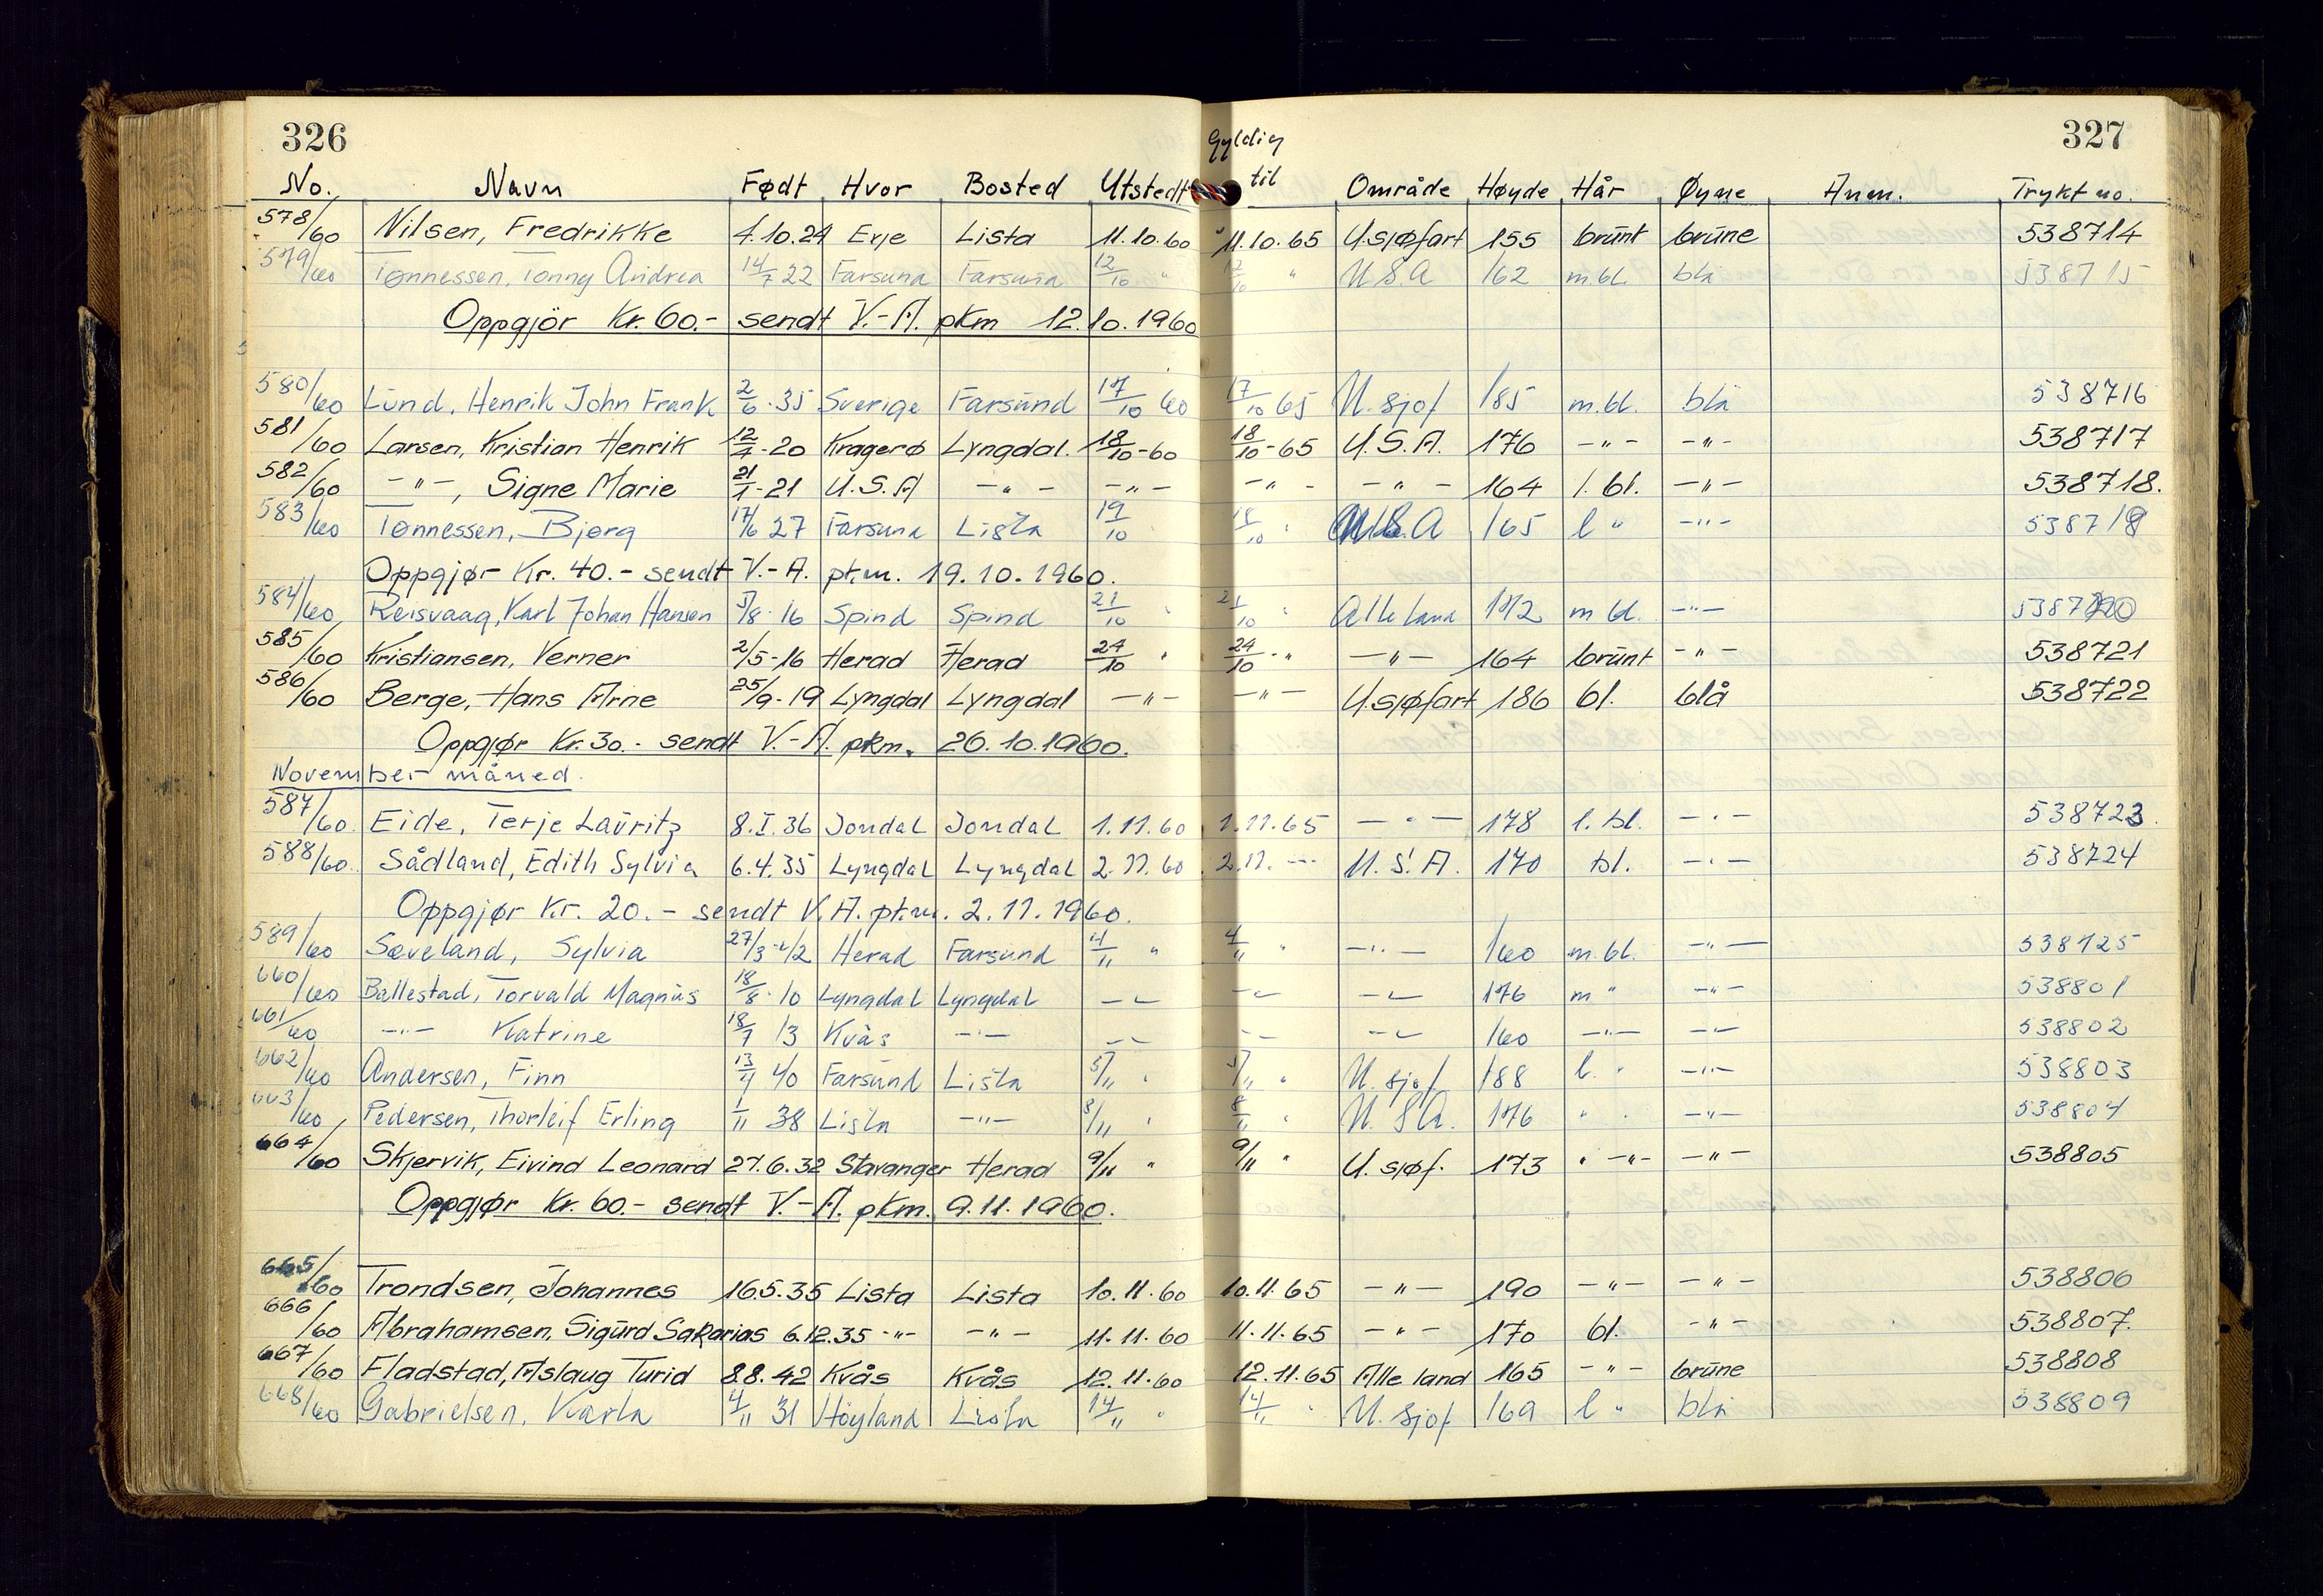 326
Gyldig
327
No. Navn Født Hvor Bosted Utstedt til Område Høyde Hår Øyne Anm. Trykt no.
578/60 Nilsen, Fredrikke 4.10.24 Erje Lista 11.10.60 11.10.65 U.sjøfart 155 brunt brune 538714
579/60 Tønnessen, Tonny Andrea 14/7 22 Farsund Farsund 12/10 " 12/10 " U.S.A 162 m.bl. blå 538715
Oppgjör Kr. 60.- sendt V.-A. pkm 12.10.1960
580/60 Lund, Henrik John Frank 2/6.35 Sverige Farsund 17/10 60 17/10 65 U. sjøf 185 m.bl. blå 538716
581/60 Larsen, Kristian Henrik 12/7-20 Kragerø Lyngdal. 18/10-60 18/10-65 U.S.A. 176 -"- -"- 538717
582/60 -"-, Signe Marie 21/1-21 U.S.A -"- -"- -"- -"- 164 l. bl. -"- 538718.
583/60 Tønnessen, Bjørg 17/6 27 Farsund Lista 19/10 " 18/10 " U.S.A 165 l " -"- 538719
Oppgjør Kr. 40.- sendt V.-A. pkm. 19.10.1960.
584/60 Reisvaag, Karl Johan Hansen 5/8.16 Spind Spind 21/10 " 21/10 " Alle land 172 m bl. -"- 538720
585/60 Kristiansen, Verner 2/5-16 Herad Herad 24/10 " 24/10 -" -"- 164 brunt -"- 538721
586/60 Berge, Hans Arne 25/9-19 Lyngdal Lyngdal -"- -"- U.sjøfart 186 bl. blå 538722
Oppgjør Kr. 30.- sendt V.-A. pkm. 26.10.1960.
November måned.
587/60. Eide, Terje Lauritz 8.I.36 Jondal Jondal 1.11.60 1.11.65 -"- 178 l. bl. -"- 538723.
588/60. Sådland, Edith Sylvia 6.4.35 Lyngdal Lyngdal 2.11.60 2.11. -"- U.S.A. 170 bl. -"- 538724
Oppgjør Kr. 20.- sendt V.A. pkm. 2.11.1960.
589/60 Sæveland, Sylvia 27/3-42 Herad Farsund 4/11 " 4/11 " -"- 160 m.bl. -"- 538725
660/60 Ballestad, Torvald Magnus 18/8.10 Lyngdal Lyngdal -"- -"- -"- 176 m " -"- 538801
661/60 -"- Katrine 18/7 13 Kvås -"- -"- -"- -"- 160 -"- -"- 538802
662/60 Andersen, Finn 13/4 40 Farsund Lista 5/11 " 5/11 " U. sjøf. 188 l. " -"- 538803
663/60 Pedersen, Thorleif Erling 1/11 38 Lista -"- 8/11 " 8/11 " U.S.A. 176 " " -"- 538804
664/60 Skjervik, Eivind Leonard 27.6.32 Stavanger Herad 9/11 " 9/11 " U. sjøf. 173 " -"- -"- 538805
Oppgjør Kr. 60.- sendt V.-A. pkm. 9.11.1960.
665/60 Trondsen, Johannes 16.5.35 Lista Lista 10.11.60 10.11.65 -"- 190 -"- -"- 538806
666/60 Abrahamsen, Sigurd Sakarias 6.12.35 -"- -"- 11.11.60 11.11.65 -"- 170 bl. -"- 538807.
667/60 Fladstad, Aslaug Turid 8.8.42 Kvås Kvås 12.11.60 12.11.65 Alle land 165 -"- brune 538808
668/60 Gabrielsen, Karla 4/11 31 Höyland Lista 14/11 " 14/11 " U. sjøf 169 l " blå 538809